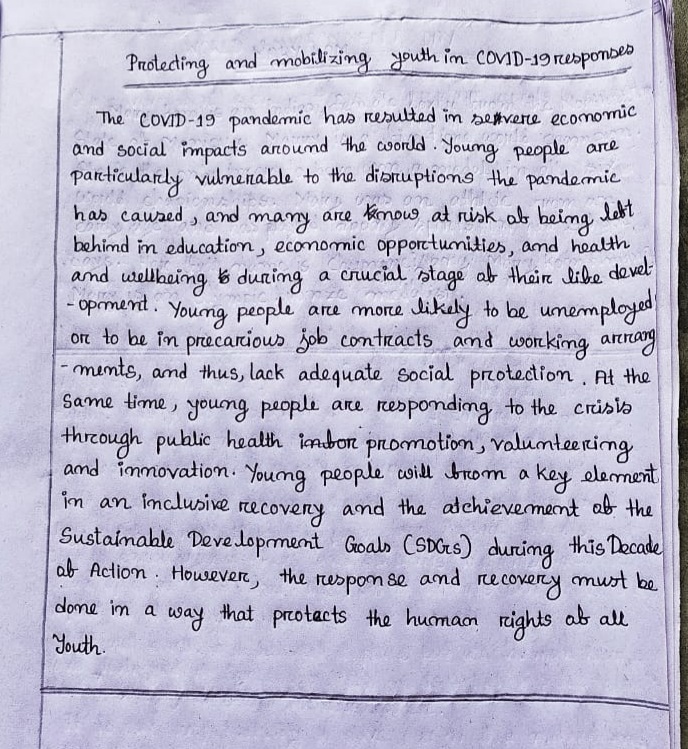 Protecting and mobilizing youth in COVID-19 responses
The COVID-19 pandemic has resulted in servere economic
and social impacts around the world. Young people are
particularly vulnerable to the disruptions the pandemic
has caused, and many are know at risk of being left
behind in education, economic opportunities, and health
and wellbeing during a crucial stage of their life devel-
-opment. Young people are more likely to be unemployed
or to be in precarious job contracts and working arrang
-ments, and thus, lack adequate social protection. At the
same time, young people are responding to the crisis
through public health promotion, valunteering
and innovation. Young people will from a key element
in an inclusive recovery and the atchievement of the
Sustainable Development Goals (SDGs) during this Decade
of Action. However, the response and recovery must be
done in a way that protects the human rights of all
Youth.